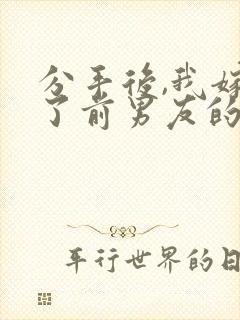 分手後,我嫁
了前男友的
平行世界的日